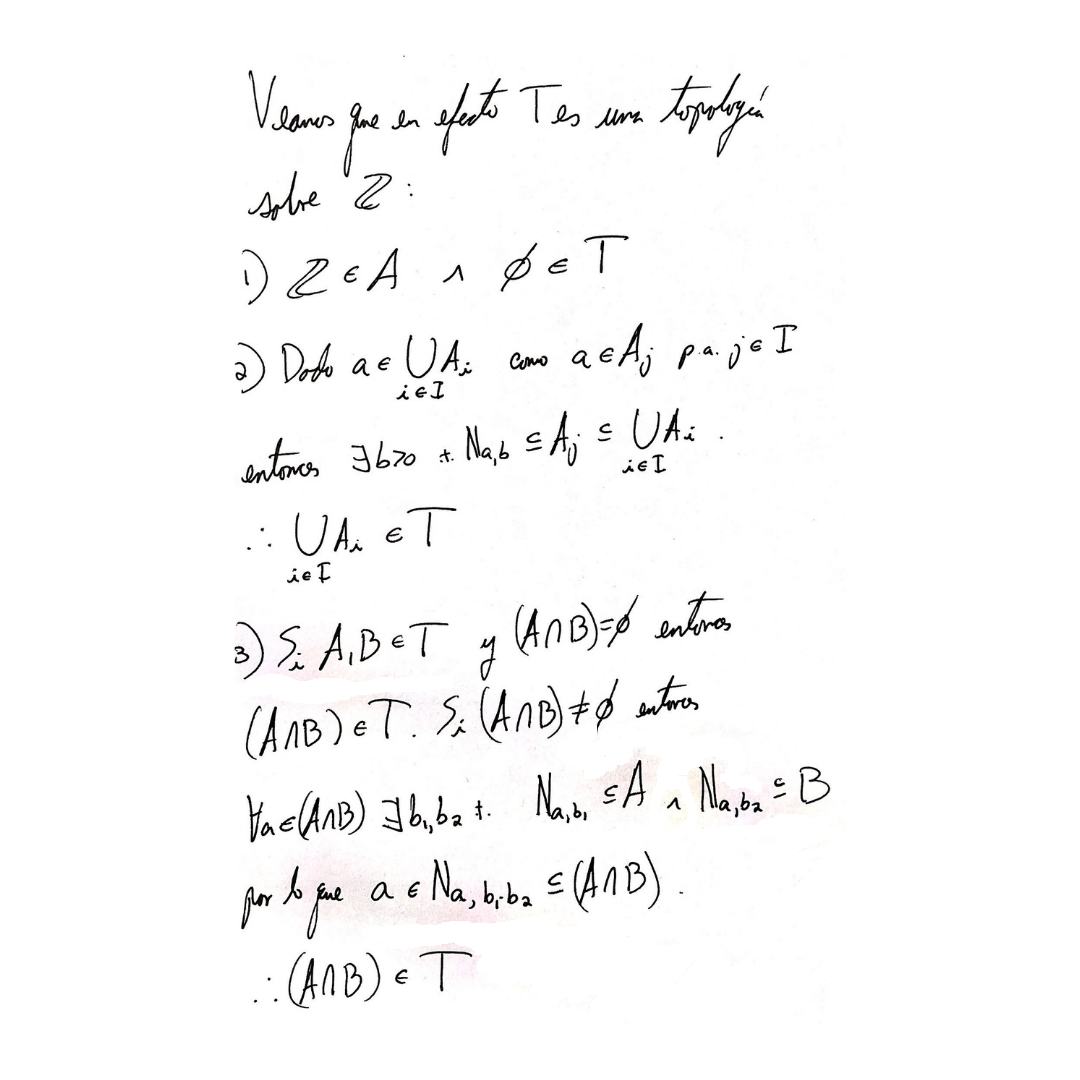 Veamos que en efecto T es una topología
sobre ℤ:
1) ℤ ∈ A ∧ ∅ ∈ T
2) Dado a ∈ ⋃_{i∈I} A_i como a ∈ A_j p.a. j ∈ I
entonces ∃b>0 t. N_{a,b} ⊆ A_j ⊆ ⋃_{i∈I} A_i .
∴ ⋃_{i∈I} A_i ∈ T
3) Si A,B ∈ T y (A∩B)=∅ entonces
(A∩B) ∈ T. Si (A∩B)≠∅ entonces
∀a∈(A∩B) ∃b₁,b₂ t. N_{a,b₁} ⊆ A ∧ N_{a,b₂} ⊆ B
por lo que a ∈ N_{a,b₁·b₂} ⊆ (A∩B) .
∴ (A∩B) ∈ T